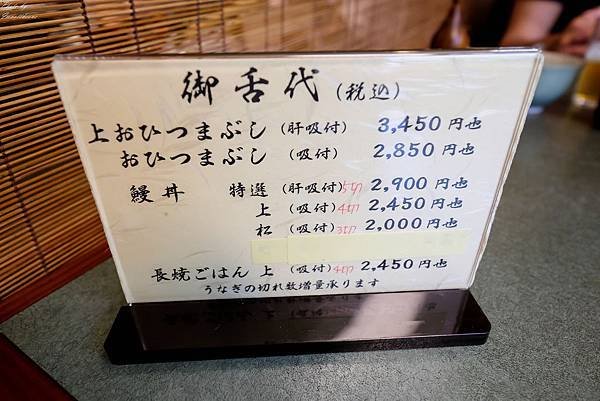 御舌代(税込)
上おひつまぶし(肝吸付) 3,450円也
おひつまぶし(吸付) 2,850円也
鰻丼 特選(肝吸付)5切 2,900円也
上(吸付)4切 2,450円也
松(吸付)3切 2,000円也
長焼ごはん 上(吸付)4切 2,450円也
うなぎの切れ数増量承ります